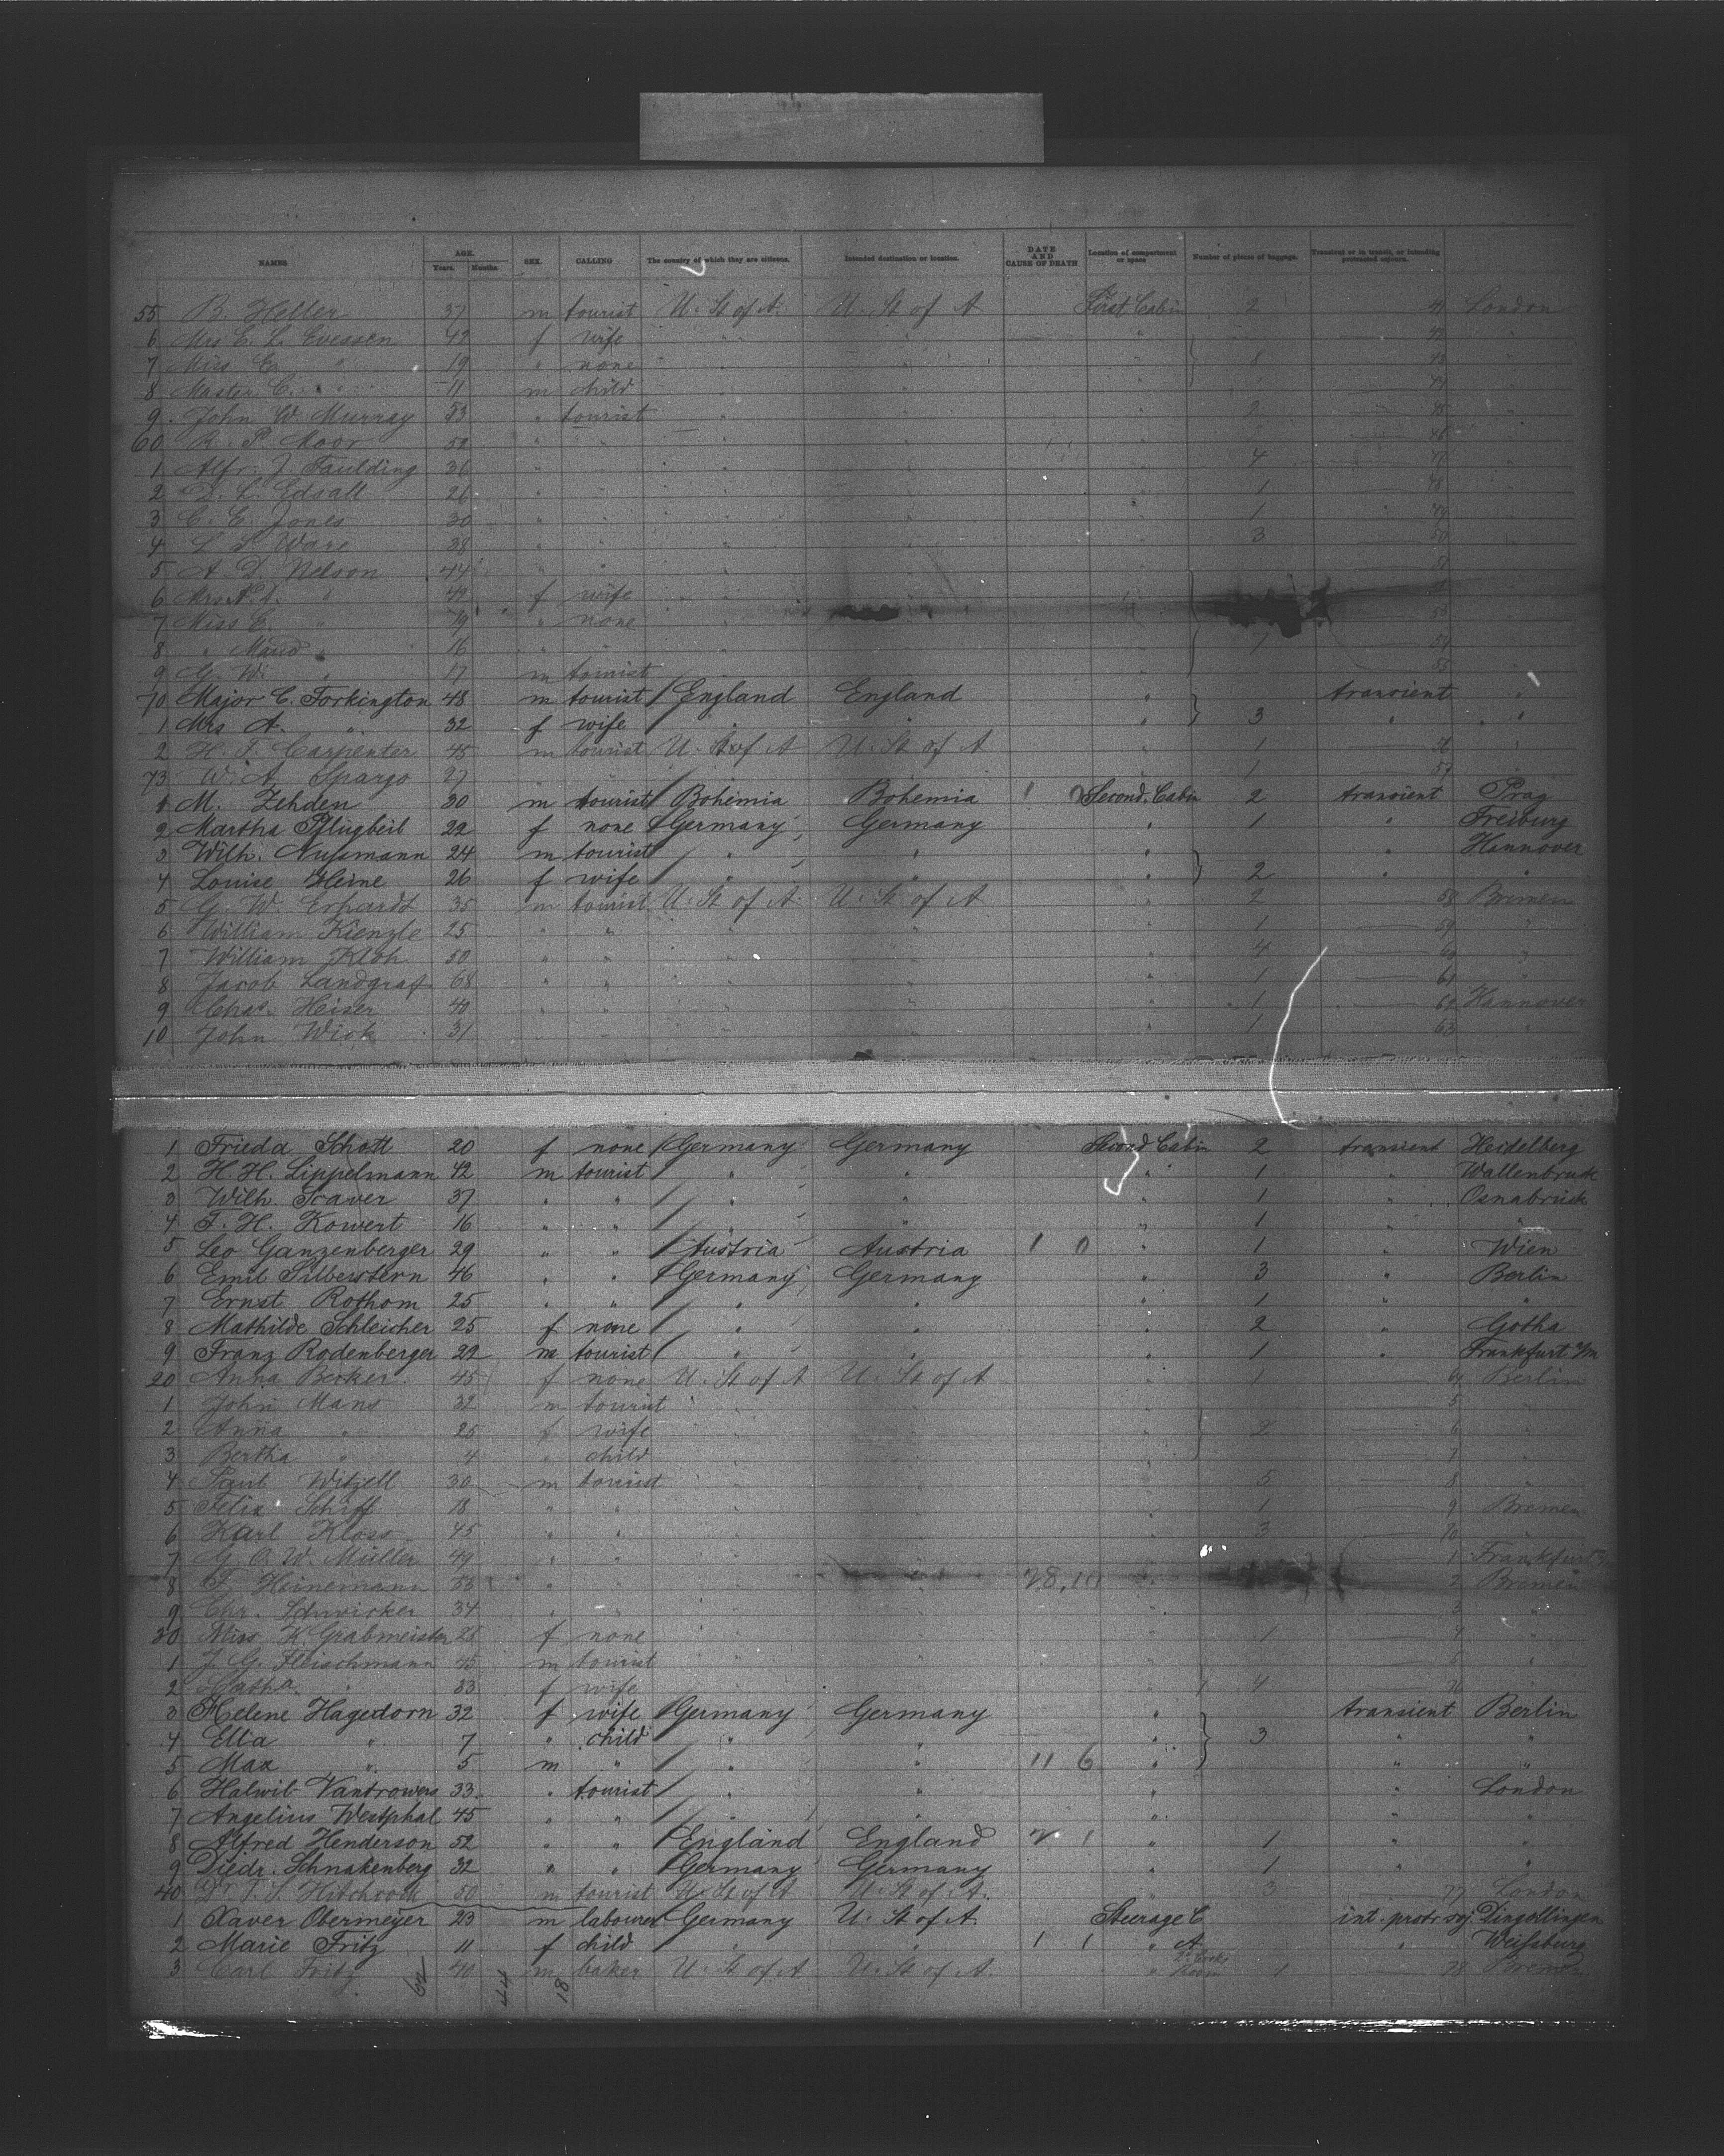 NAMES AGE. Years. Months. SEX. CALLING The country of which they are citizens. Intended destination or location. DATE AND CAUSE OF DEATH Location of compartment or space Number of pieces of baggage. Transient or in transit, or intending protracted sojourn.
55 B. Heller 37 m tourist U. St of A. U. St of A First Cabin 2 41 London
6 Mrs E. L. Evessen 42 f wife " " " 42 "
7 Miss E. " 19 " none " " " 8 43 "
8 Master C. " 11 m child " " " 44 "
9 John W. Murray 53 " tourist " " " 2 45 "
60 R. P. Moor 52 " " " " " 46 "
1 Alfr. J. Faulding 36 " " " " " 4 47 "
2 D. L. Edsall 26 " " " " " 1 48 "
3 C. E. Jones 30 " " " " " 1 49 "
4 L. L. Ware 38 " " " " " 3 50 "
5 A. D. Nelson 44 " " " " " 51 "
6 Mrs " 42 f wife " " "
7 Miss E. " 19 " none " " 53 "
8 " Maud " 16 " " " " " 7 54 "
9 G. W. " 17 m tourist " " " 55 "
70 Major C. Torkington 48 m tourist England England " transient "
1 Mrs A. " 32 f wife " " " 3 " "
2 H. J. Carpenter 45 m tourist U. St of A U. St of A " 1 56 "
73 W. A. Spargo 27 " " " " " 1 57 "
1 M. Zehden 30 m tourist Bohemia Bohemia Second Cabin 2 transient Prag
2 Martha Pflugbeil 22 f none Germany Germany " 1 " Freiburg
3 Wilh. Nußmann 24 m tourist " " " " Hannover
4 Louise Heine 26 f wife " " " 2 " "
5 G. W. Erhardt 35 m tourist U. St of A. U. St of A " 2 58 Bremen
6 William Kienzle 25 " " " " " 1 59 "
7 William Kloh 50 " " " " " 4 60 "
8 Jacob Landgraf 68 " " " " " 1 61 "
9 Chas. Heiser 40 " " " " " 1 62 Hannover
10 John Wick 31 " " " " " 1 63 "
1 Frieda Schott 20 f none Germany Germany Second Cabin 2 transient Heidelberg
2 H. H. Lippelmann 42 m tourist " " " 1 " Wallenbruck
3 Wilh 37 " " " " " 1 " Osnabrück
4 F. H. Kowert 16 " " " " " 1 " "
5 Leo Ganzenberger 29 " " Austria Austria 1 0 " 1 " Wien
6 Emil Silberstern 46 " " Germany Germany " 3 " Berlin
7 Ernst Rothom 25 " " " " " 1 " "
8 Mathilde Schleicher 25 f none " " " 2 " Gotha
9 Franz Rodenberger 22 m tourist " " " 1 " Frankfurt a/m
20 Anna Becker 45 f none U. St of A U. St of A " 1 64 Berlin
1 John Mans 32 m tourist " " " 5 "
2 Anna " 25 f wife " " " 2 6 "
3 Bertha " 4 " child " " " 7 "
4 Paul Witzell 30 m tourist " " " 5 8 "
5 Felix Schiff 18 " " " " " 1 9 Bremen
6 Karl Kloss 45 " " " " " 3 70 "
7 G. O. W. Müller 49 " " " " " 1 Frankfurt
8 F. Heinemann 55 " " " 28,10 " 2 Bremen
9 Chr. Schwicker 34 " " " " " 3 "
30 Miss K. Grabmeister 25 f none " " " 1 4 "
1 J. G. Fleischmann 45 m tourist " " " 5 "
2 " 33 f wife " " " 4 76 "
3 Helene Hagedorn 32 f wife Germany Germany " transient Berlin
4 Ella " 7 " child " " " 3 " "
5 Max " 5 m " " " 11 6 " " "
6 33 " tourist " " " " London
7 Angelius Westphal 45 " " " " " " "
8 Alfred Henderson 52 " " England England 2 1 " 1 " "
9 Diedr. Schnakenberg 32 " " Germany Germany " 1 " "
40 Dr. Hitchcock 50 m tourist U. St of A U. St of A. " 3 77 London
1 Xaver Obermeyer 23 m labourer Germany U. St of A. Steerage C int. protr. soj. Dingolfingen
2 Marie Fritz 11 f child " " 1 1 " A " Weißburg
3 Carl Fritz 40 m baker U. St of A U. St of A. " Room 1 78 Bremen
44 18